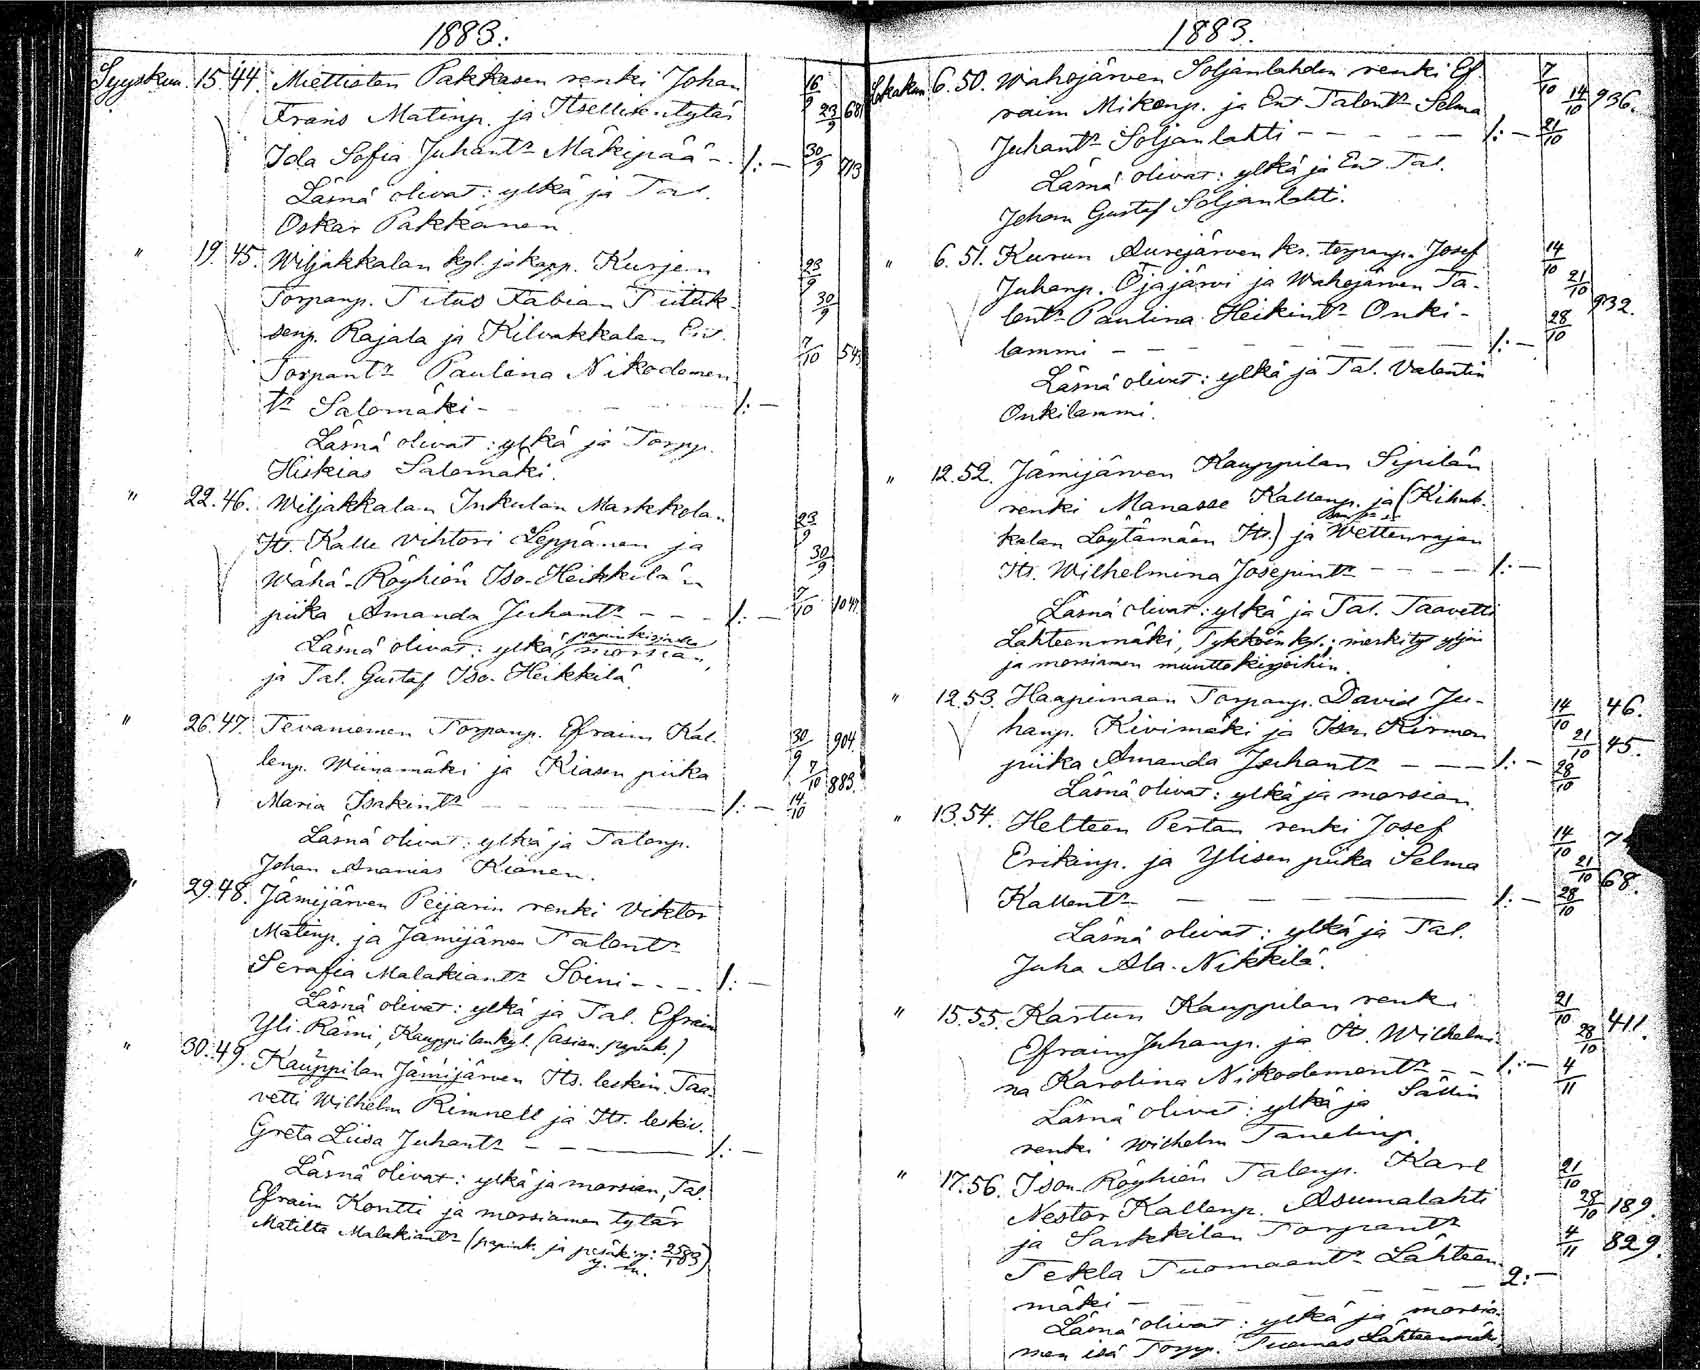 1883.
Syyskuu 15. 44. Miettisten Pakkasen renki Johan 16/9
Frans Matinp. ja Itsellisentytär 23/9 681
Ida Sofia Juhantr Mäkipää - 1:- 30/9 713
Läsnä olivat: ylkä ja Tal.
Oskar Pakkanen.
" 19. 45. Wiljakkalan kyl. ja kapp. Kurjen 23/9
Torpanp. Titus Fabian Tiituk- 30/9
senp. Rajala ja Kilvakkalan Ent.
Torpantr Paulina Nikodemen 7/10 543
tr Salomäki - 1:-
Läsnä olivat: ylkä ja Torpp.
Hiskias Salomäki.
" 22. 46. Wiljakkalan Inkulan Markkolan 23/9
Its. Kalle Vihtori Leppänen ja 30/9
Wähä-Röyhiön Iso-Heikkilän
piika Amanda Juhantr - - 1:- 7/10 1047
Läsnä olivat: ylkä, morsian,
ja Tal. Gustaf Iso-Heikkilä.
" 26. 47. Tevaniemen Torpanp. Efraim Kal- 30/9 904.
lenp. Wiinamäki ja Kiasen piika 7/10 883.
Maria Isakintr 1:- 14/10
Läsnä olivat: ylkä ja Talonp.
Johan Ananias Kiänen.
" 29. 48. Jämijärven Peijarin renki Viktor
Matinp. ja Jämijärven Talontr
Serafia Malakiantr Soini - - - 1:-
Läsnä olivat: ylkä ja Tal. Efraim
Yli-Rämi, Kauppilan kyl. (asian. papink.)
" 30. 49. Kauppilan Jämijärven Its. leskim. Taa-
vetti Wilhelm Rimnell ja Its. leskiv.
Greta Liisa Juhantr - - 1:-
Läsnä olivat: ylkä ja morsian, Tal.
Efraim Kontti ja morsiamen tytär
Matilta Malakiantr (papink. ja
1883.
Lokakuu 6. 50. Wahojärven Soljanlahden renki Ef 7/10
raim Mikonp. ja Ent. Talontr Selma 14/10 936.
Juhantr Soljanlahti - - - - 1:- 21/10
Läsnä olivat: ylkä ja Ent. Tal.
Johan Gustaf Soljanlahti.
" 6. 51. Kurun Aurejärven ks. torpanp. Josef 14/10
Juhanp. Ojajärvi ja Wahojärven Ta- 21/10
lontr Paulina Heikintr Onki- 28/10 932.
lammi - - - - 1:-
Läsnä olivat: ylkä ja Tal. Valentin
Onkilammi.
" 12. 52. Jämijärven Kauppilan Sipilän
renki Manasse Kallenp. ja (Kihnk-
kalan Löytämään Its.) ja Wettenrajan
Its. Wilhelmina Josepintr - - - 1:-
Läsnä olivat: ylkä ja Tal. Taavetti
Lähteenmäki, Tykköön kyl.; merkityt yljän
ja morsiamen muuttokirjoihin.
" 12. 53. Haapimaan Torpanp. David Ju- 14/10 46.
hanp. Kivimäki ja Ison Kirmon 21/10 45.
piika Amanda Juhantr - - - 1:- 28/10
Läsnä olivat: ylkä ja morsian.
" 13. 54. Helteen Pertan renki Josef 14/10
Erikinp. ja Ylisen piika Selma 21/10 68.
Kallentr - - - 1:- 28/10
Läsnä olivat: ylkä ja Tal.
Juha Ala-Nikkilä.
" 15. 55. Kartun Kauppilan renki 21/10 411.
Efraim Juhanp. ja Its. Wilhelmi- 28/10
na Karolina Nikodementr - - 1:- 4/11
Läsnä olivat: ylkä ja Sällin
renki Wilhelm Tanelinp.
" 17. 56. Ison-Röyhiön Talonp. Karl 21/10
Nestor Kallenp. Asumalahti 28/10 189.
ja Sarkkilan Torpantr 4/11 829.
Tekla Tuomaantr Lähteen
mäki - - - 2:-
Läsnä olivat: ylkä ja morsia-
men isä Torpp. Tuomas Lähteenmäki